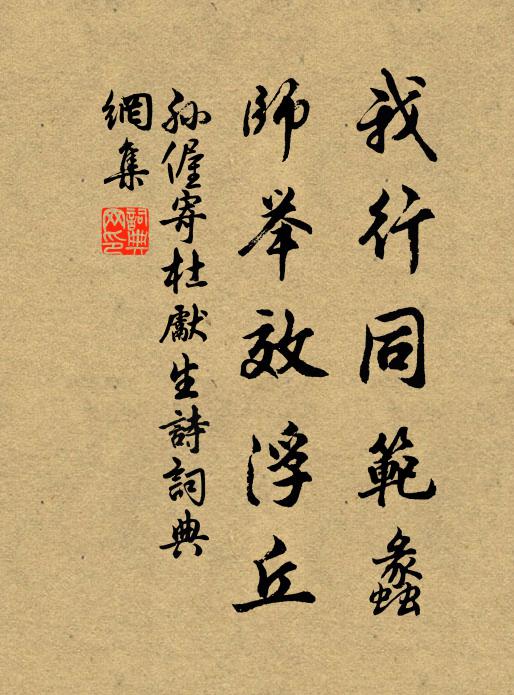 我行同範蠡
師举效浮丘
孫偓寄杜獻生詩詞典
網集
詞典網印